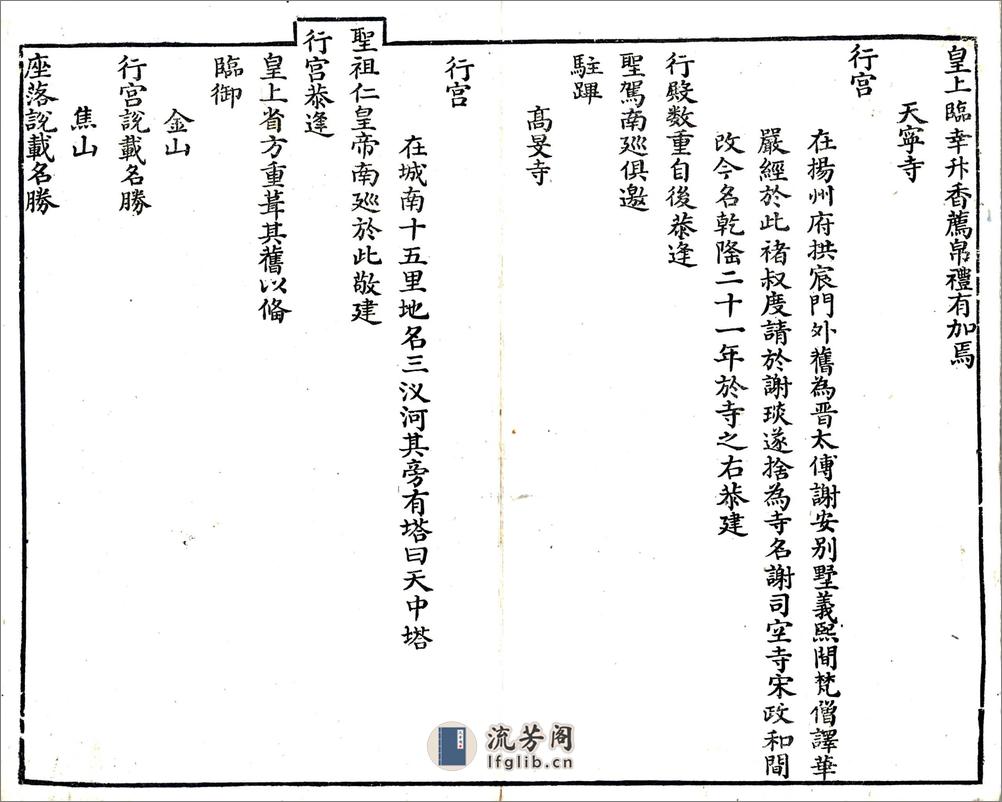 皇上臨幸升香薦帛禮有加焉
天寧寺
行宮
在揚州府拱宸門外舊為晋太傅謝安别墅義熙間梵僧譯華
嚴經於此褚叔度請於謝琰遂捨為寺名謝司空寺宋政和間
改今名乾隆二十一年於寺之右恭建
行殿数重自後恭逢
聖駕南廵俱邀
駐蹕
髙旻寺
行宮
在城南十五里地名三汊河其旁有塔曰天中塔
聖祖仁皇帝南廵於此敬建
行宮恭逢
皇上省方重葺其舊以俻
臨御
金山
行宮説載名勝
焦山
座落説載名勝
流芳阁
lfglib.cn